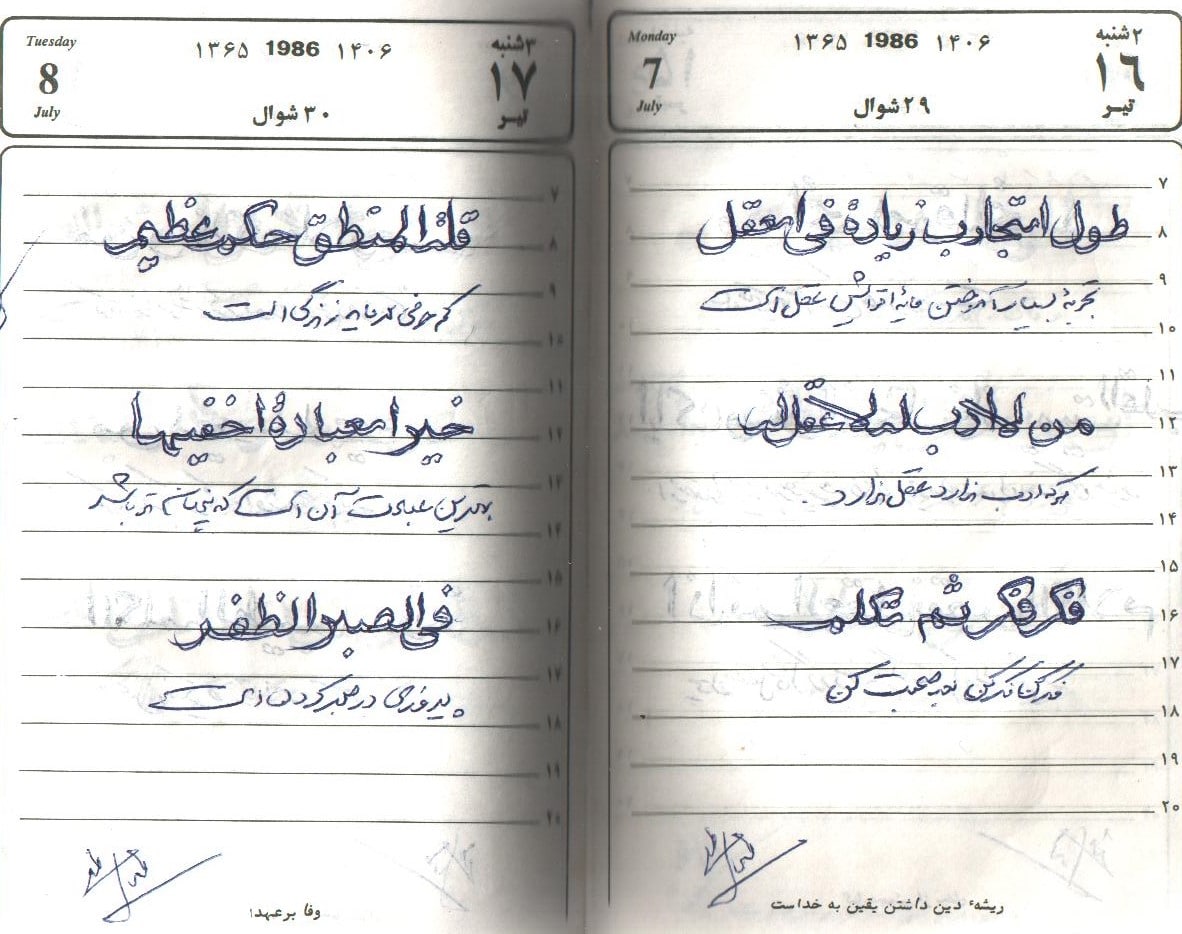 ۲شنبه
۱۶
تیـر
۱۳۶۵ 1986 ۱۴۰۶
۲۹ شوال
Monday
7
July
۷
طول التجارب زیادة فی العقل
۸
۹
تجربهٔ بسیار آموختن مایهٔ افزایش عقل است
۱۰
۱۱
من لا ادب له لا عقل له
۱۲
۱۳
هرکه ادب ندارد عقل ندارد.
۱۴
۱۵
فکر فکر ثم تکلم
۱۶
۱۷
فکر کن فکر کن بعد صحبت کن
۱۸
۱۹
۲۰
ریشهٔ دین داشتن یقین به خداست
۳شنبه
۱۷
تیـر
۱۳۶۵ 1986 ۱۴۰۶
۳۰ شوال
Tuesday
8
July
۷
قلة المنطق حکم عظیم
۸
۹
کم حرفی سرمایه زندگی است
۱۰
۱۱
خیر العبادة اخفیها
۱۲
۱۳
بهترین عبادت آن است که پنهان تر باشد
۱۴
۱۵
فی الصبر الظفر
۱۶
۱۷
پیروزی در صبر کردن است
۱۸
۱۹
۲۰
وفا بر عهد!